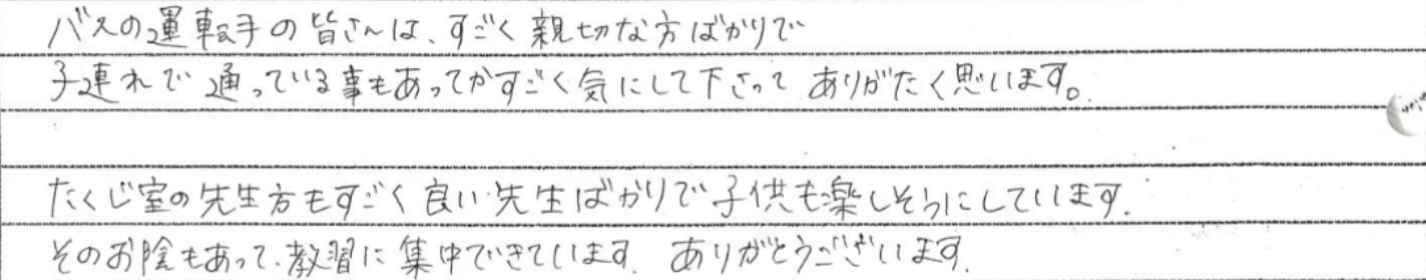 バスの運転手の皆さんは、すごく親切な方ばかりで
子連れで通っている事もあってかすごく気にして下さって ありがたく思います。
たくじ室の先生方もすごく良い先生ばかりで子供も楽しそうにしています.
そのお陰もあって、教習に集中できています. ありがとうございます.